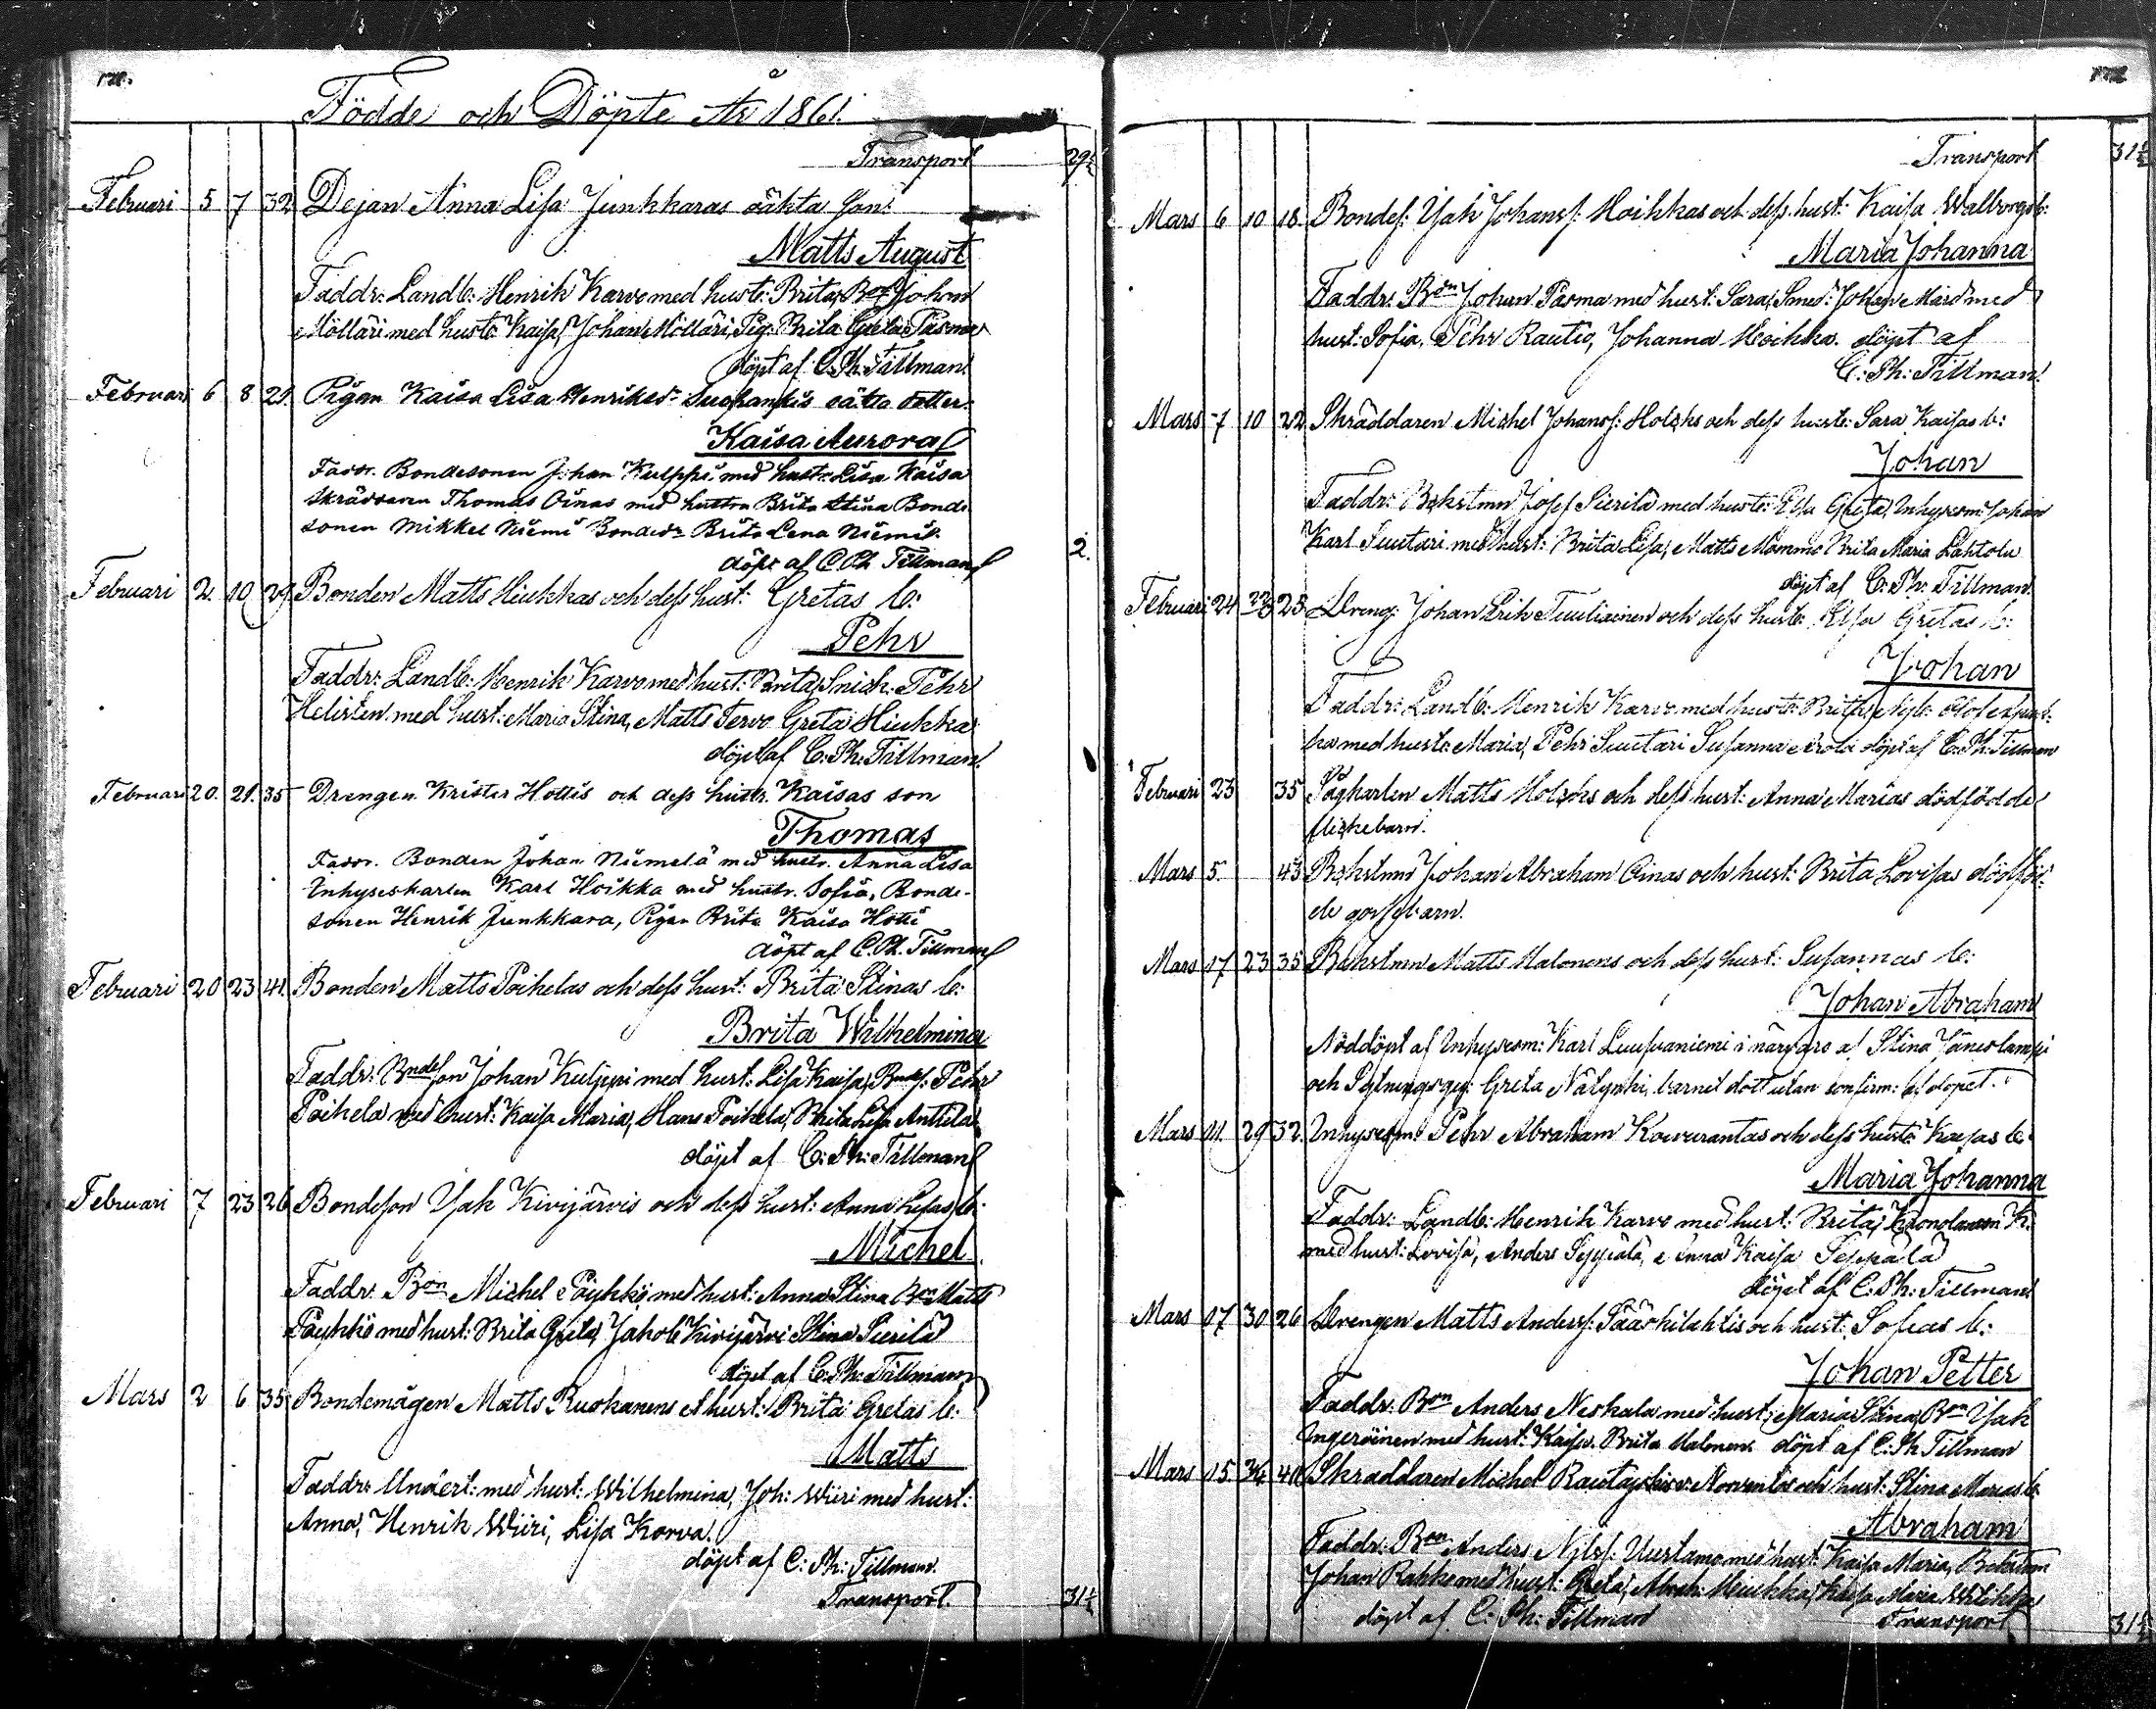 Födde och Döpte År 1861.
Transport 29½
Februari 5 7 32 Dejan Anna Lisa Junkkaras oäkta son:
Matts August
Faddr: Landb: Henrik Karvo med hustr: Brita, Johan
Mölläri med hustr: Kaisa, Johan Mölläri, Pig. Brita Greta Pasma
döpt af C. Ph. Tillman.
Februari 6 8 29. Pigan Kaisa Lisa Henriksdr Suopankis oäkta dotter.
Kaisa Aurora
Faddr. Bondesonen Johan Kulppi med hustr. Lisa Kaisa
Skräddaren Thomas Oinas med hustru Brita Stina Bonde-
sonen Mikkel Niemi Bondedr Brita Lena Niemi
döpt af C. Ph. Tillman
2.
Februari 2 10 29 Bonden Matts Hiukkas och dess hust: Gretas b:
Pehr
Faddr: Landb: Henrik Karvo med hust: Brita, Snick. Pehr
Helisten med hust: Maria Stina, Matts Tervo Greta Hiukka
döpt af C. Ph. Tillman.
Februari 20. 21. 35 Drengen Krister Hottis och dess hustr. Kaisas son
Thomas
Faddr. Bonden Johan Niemelä med hustr. Anna Lisa
Inhyseskarlen Karl Hoikka med hustr. Sofia, Bonde-
sonen Henrik Junkkara, Pigan Brita Kaisa Hotti
döpt af C. Ph. Tillman
Februari 20 23 41. Bonden Matts Poikelas och dess hust: Brita Stinas b:
Brita Wilhelmina
Faddr: Bondeson Johan Kulppi med hust: Lisa Kaisa, Bndes: Pehr
Poikela med hust: Kaisa Maria, Hans Poikela, Brita Lisa Anttila
döpt af C: Ph: Tillman
Februari 7 23 26 Bondeson Isak Kivijärvis och dess hust: Anna Lisas b:
Michel
Faddr. Bon Michel Pöyhkö med hust: Anna Stina Bon Matts
Pöyhkö med hust: Brita Greta, Jakob Kivijärvi Stina Sierilä
döpt af C. Ph. Tillman
Mars 2 6 35 Bondemågen Matts Ruokanens & hust: Brita Gretas b:
Matts
Faddr: Undert: med hust: Wilhelmina, Joh: Wiiri med hust:
Anna, Henrik Wiiri, Lisa Korva.
döpt af C: Ph: Tillman.
Transport. 31½
Transport 31½
Mars 6 10 18 Bondes: Isak Johanss: Hoikkas och dess hust: Kaisa Walborgs b:
Maria Johanna
Faddr. Bon Johan Pasma med hust: Sara, Smed: Johan Mård med
hust: Sofia, Pehr Rautio, Johanna Hoikka. döpt af
C: Ph: Tillman.
Mars 7 10 22 Skräddaren Michel Johanss: och dess hustr: Sara Kaisas b:
Johan
Faddr: Josef Sierilä med hustr: Elsa Greta, Inhysesm: Johan
Karl Suutari med hust: Brita Lisa, Matts Mämmö Brita Maria Lahtela
döpt af C: Ph: Tillman.
Februari 24 25 Dreng: Johan Erik Tuuliainen och dess hustr: Elsa Gretas b:
Johan
Faddr: Landb: Henrik Karvo med hustr: Brita, Nyb: Olof
ka med hustr: Maria, Pehr Suutari Susanna döpt af C. Ph. Tillman
Februari 23 35 Matts och dess hust: Anna Marias dödfödde
flickebarn.
Mars 5. 43 Johan Abraham Oinas och hust: Brita Lovisas dödföd-
de gossebarn.
Mars 17 23 35 Matts Halonens och dess hust: Susannas b:
Johan Abraham
Nöddöpt af Inhysesm: Karl Luusuaniemi i närvaro af Stina Jäneslampi
och Greta barnet dött utan confirm: af dopet.
Mars 11. 29 32. Inhysesm: Pehr Abraham Kouvurantas och dess hustr: Kaisas b:
Maria Johanna
Faddr: Landb: Henrik Karvo med hust: Brita, K.
med hust: Lovisa, Anders Seppälä, Anna Kaisa Seppälä
döpt af C: Ph: Tillman
Mars 17 30 26 Drengen Matts Anderss: Pääskilahtis och hust: Sofias b:
Johan Petter
Faddr. Bon Anders Niskala med hust: Maria Stina, Bon Isak
Ingeröinen med hust: Kaisa. Brita Halonen. döpt af C: Ph Tillman
Mars 15 ¾ 40 Skräddaren Michel och hust: Stina Marias b:
Abraham
Faddr: Bon Anders Nilss: Uustamo med hust: Kaisa Maria,
Johan Rahko med hust: Greta, Abrah: Hiukka, Kaisa Maria
döpt af C: Ph: Tillman
Transport 31½